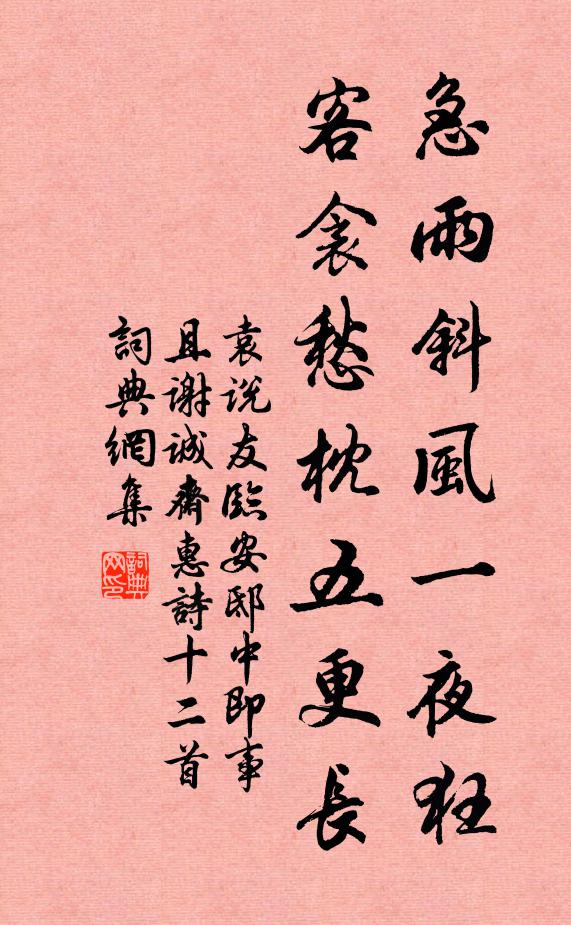 急雨斜風一夜狂
客衾愁枕五更長
袁説友臨安邸中即事
且謝誠齋惠詩十二首
詞典網集
詞典網印